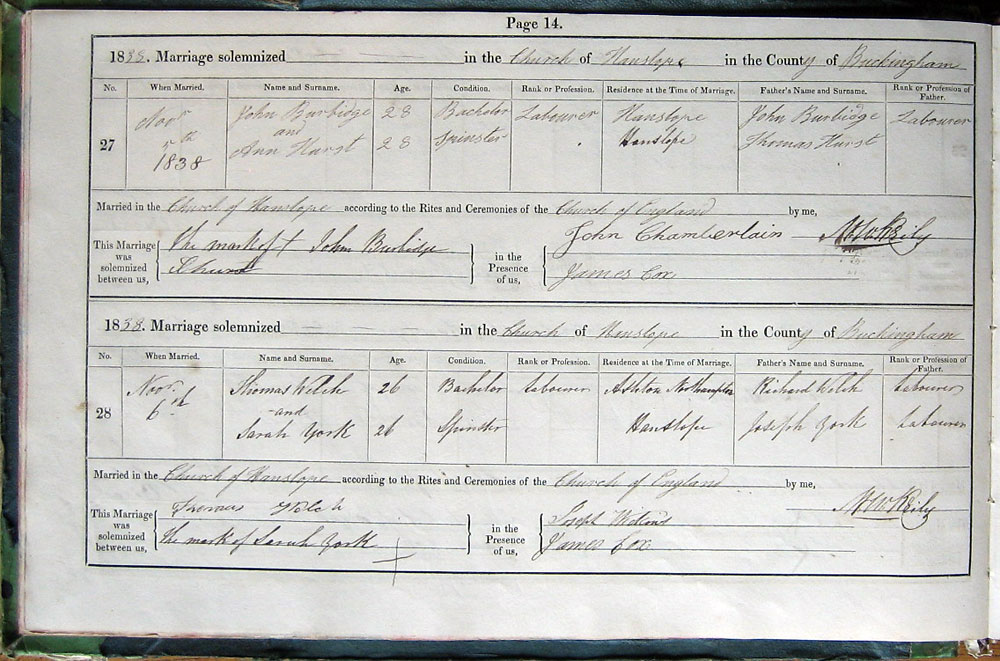 Page 14.
1838. Marriage solemnized in the Church of Hanslope in the County of Buckingham
No. When Married. Name and Surname. Age. Condition. Rank or Profession. Residence at the Time of Marriage. Father's Name and Surname. Rank or Profession of Father.
27 Novr 5th 1838 John Burbidge 28 Bachelor Labourer Hanslope John Burbidge Labourer
and
Ann Hurst 28 Spinster Hanslope Thomas Hurst
Married in the Church of Hanslope according to the Rites and Ceremonies of the Church of England by me,
This Marriage was solemnized between us, The mark of + John Burbidge in the Presence of us, John Chamberlain
James Cox
1838. Marriage solemnized in the Church of Hanslope in the County of Buckingham
No. When Married. Name and Surname. Age. Condition. Rank or Profession. Residence at the Time of Marriage. Father's Name and Surname. Rank or Profession of Father.
28 Novr 6 Thomas Welch 26 Bachelor Labourer Ashton Northampton Richard Welch Labourer
and
Sarah York 26 Spinster Hanslope Joseph York Labourer
Married in the Church of Hanslope according to the Rites and Ceremonies of the Church of England by me,
This Marriage was solemnized between us, Thomas Welch in the Presence of us, Joseph
The mark of Sarah York + James Cox